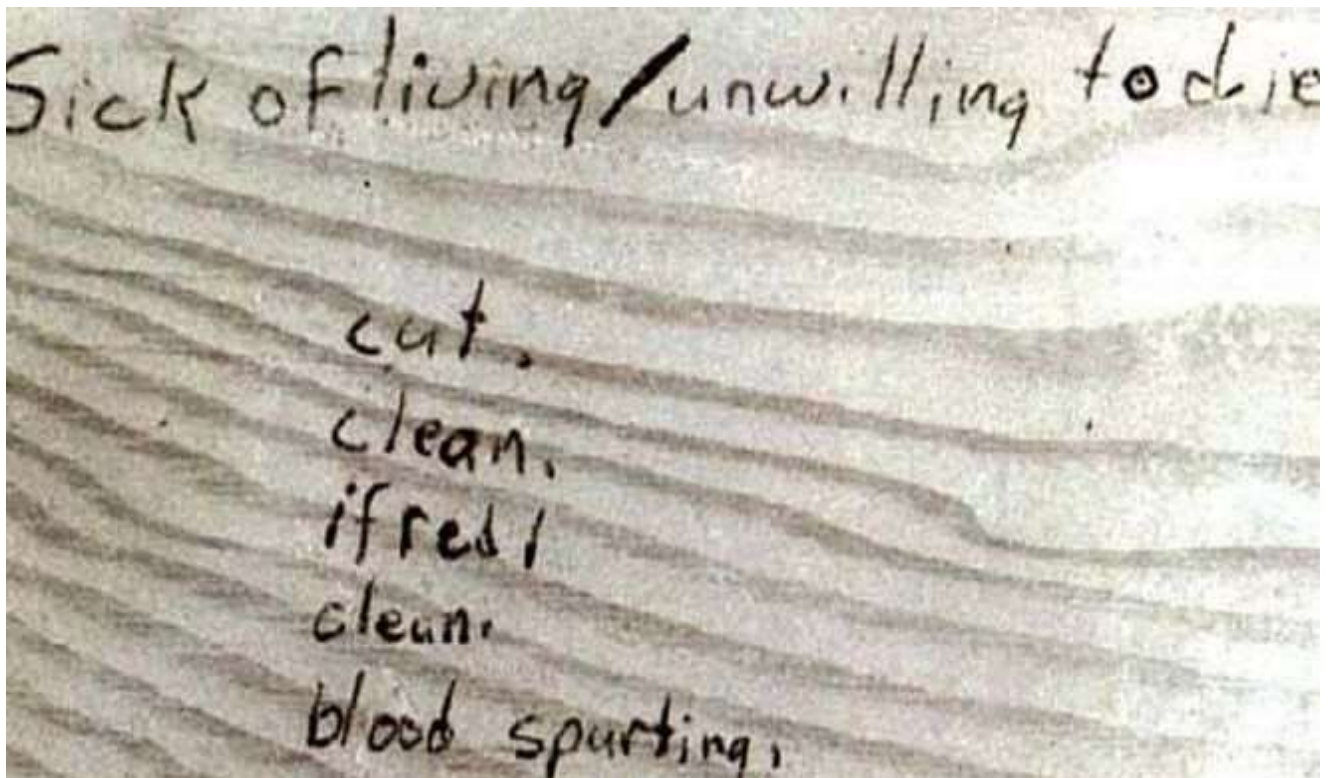 Sick of living/unwilling to die
cut.
clean.
if red/
clean.
blood spurting.